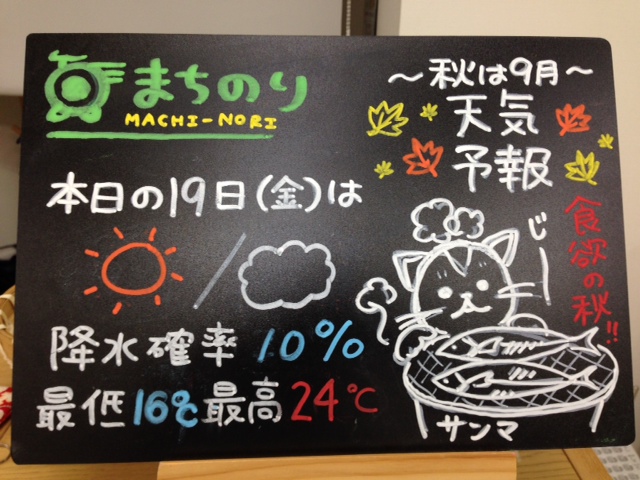 まちのり
MACHI-NORI
～秋は9月～
天気
予報
本日の19日(金)は
降水確率 10%
最低16℃最高24℃
食欲の秋!!
じーー
サンマ